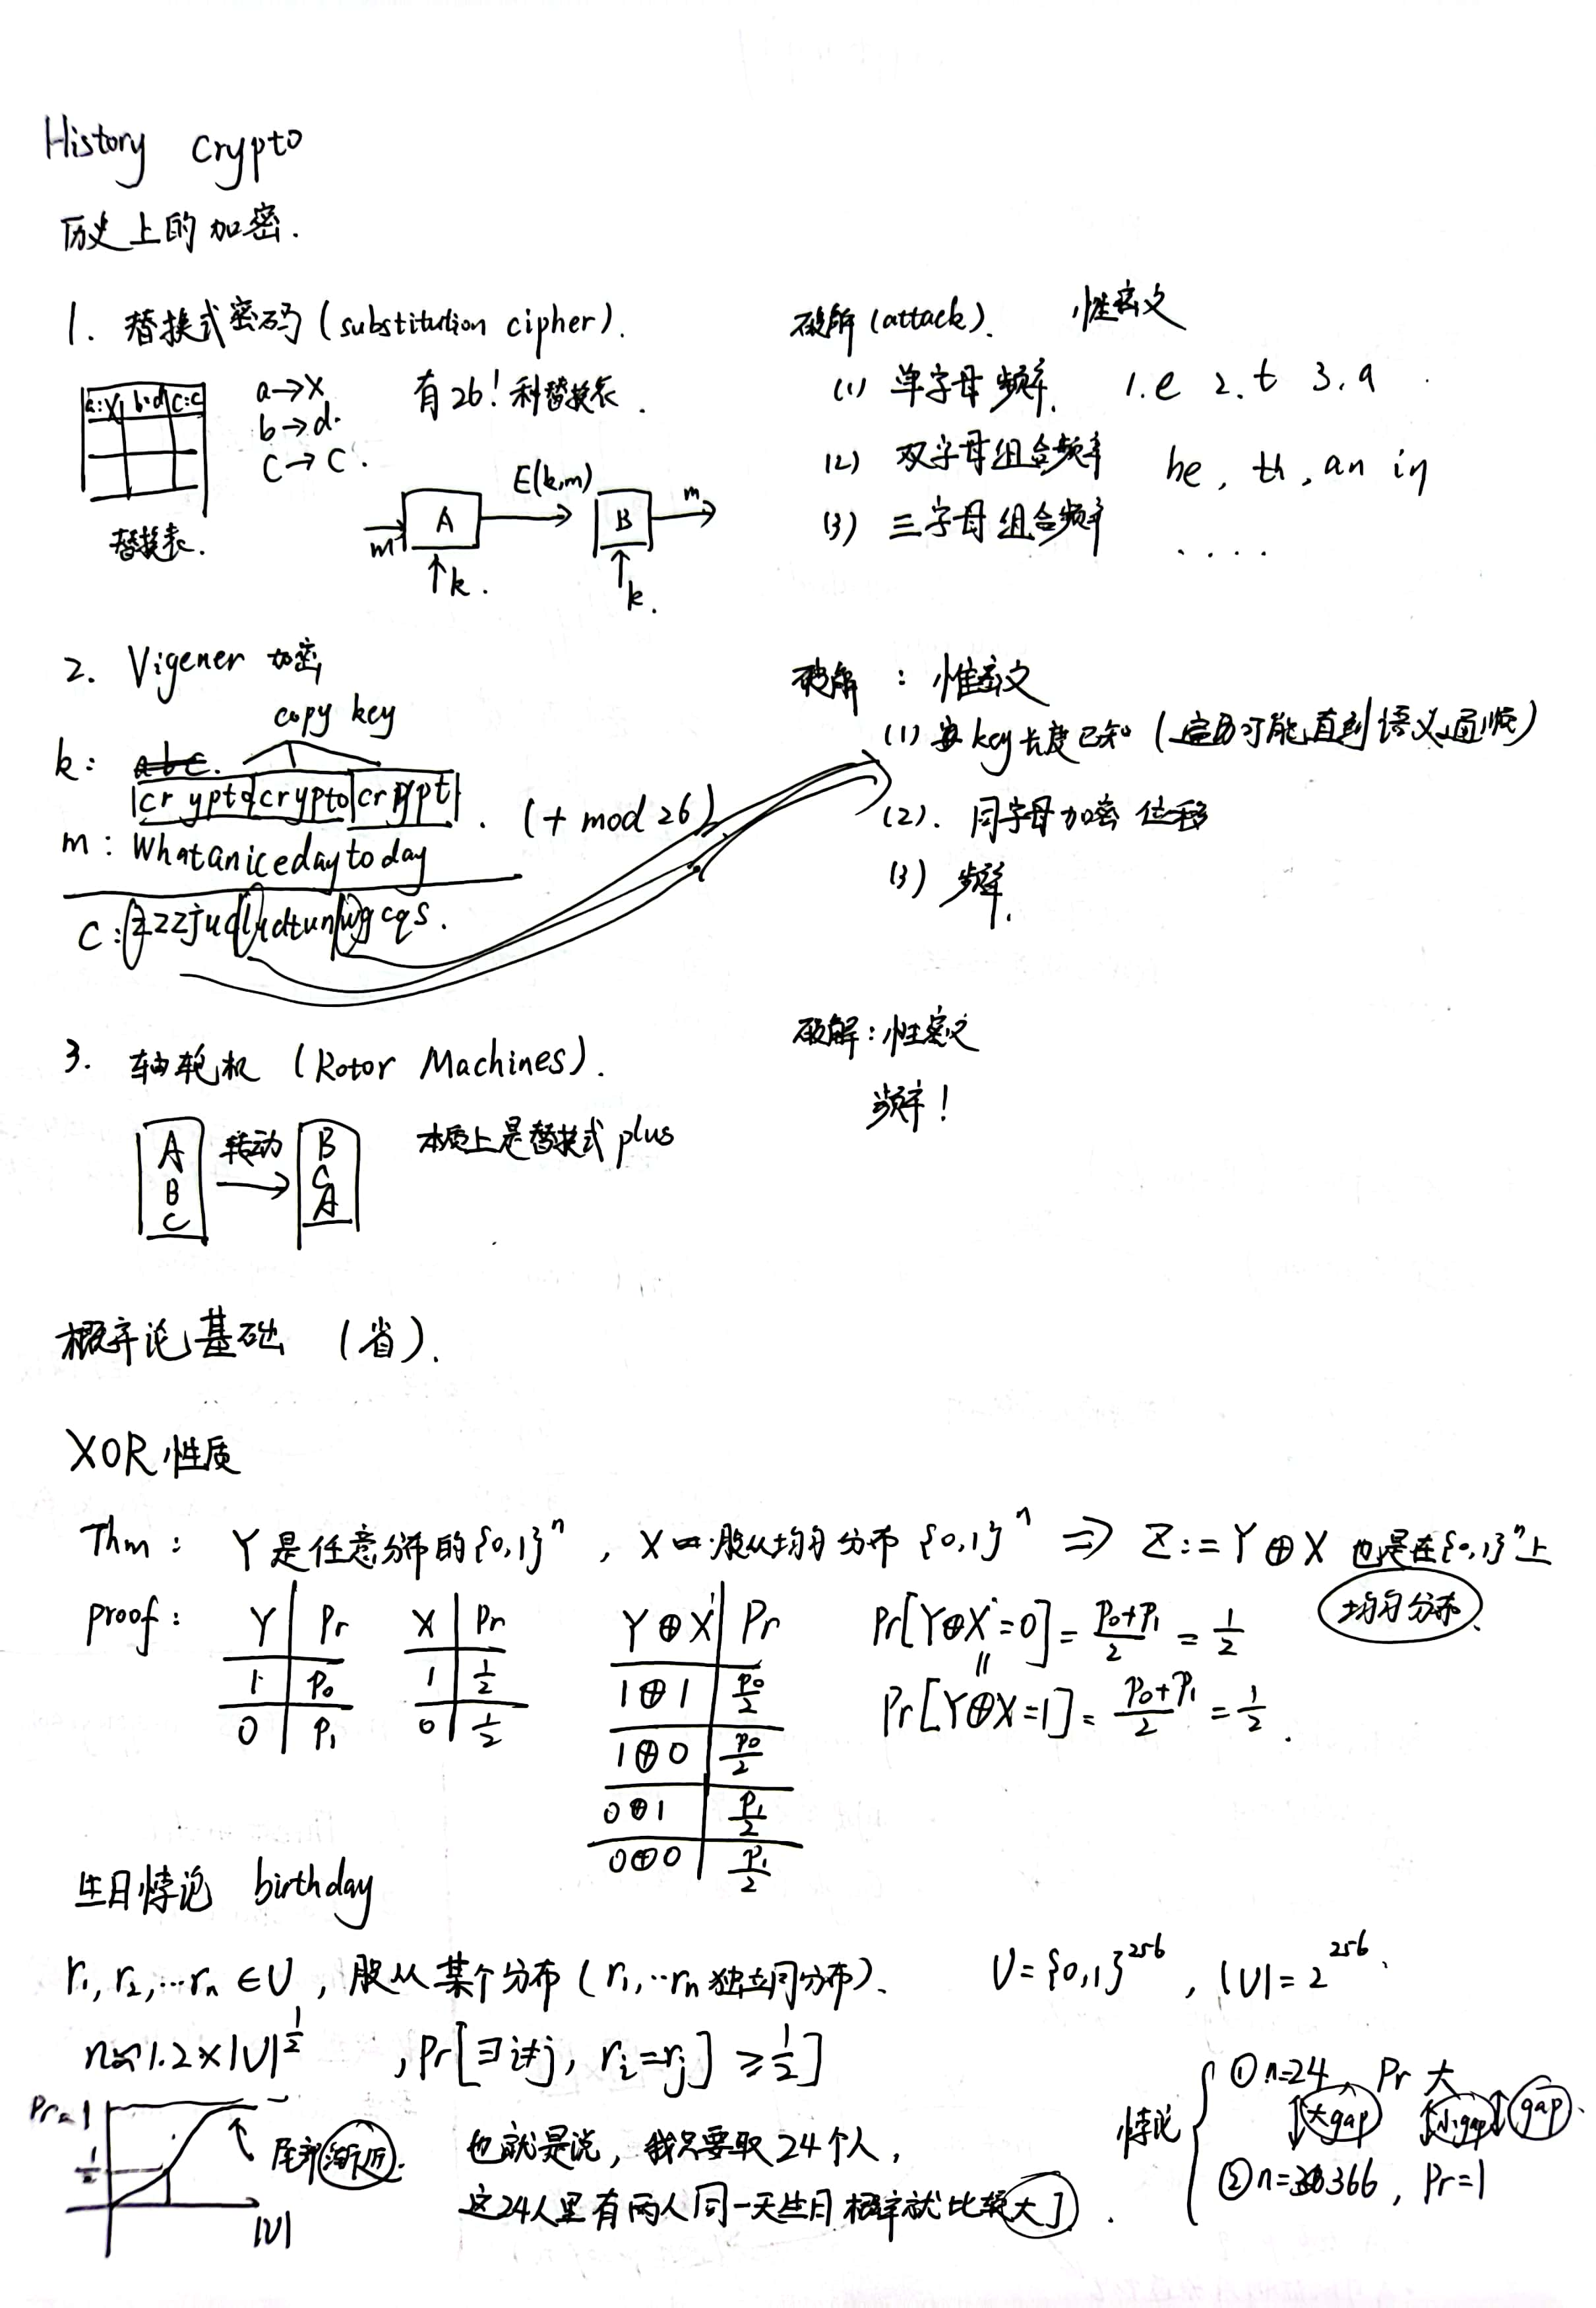 History crypto
历史上的加密.
1. 替换式密码 (substitution cipher).
a:x b:d c:c
替换表.
a→x
b→d.
c→c.
有26!种替换表.
m A E(k,m) B m
k. k.
破解 (attack). 惟密文
(1) 单字母频率. 1.e 2.t 3.a
(2) 双字母组合频率 he, th, an in
(3) 三字母组合频率 ....
2. Vigener 加密
copy key
k: abc.
crypto crypto crypt . (+ mod 26)
m: Whatanicedaytoday
C: zzzjucludtunwgcqs.
破解 : 惟密文
(1) key长度已知 (遍历可能直到语义通顺)
(2). 同字母加密 位移
(3) 频率.
3. 轴轮机 (Rotor Machines).
A B C 转动 B C A
本质上是替换式 plus
破解: 惟密文
频率!
概率论基础 (省).
XOR 性质
Thm: Y是任意分布的{0,1}ⁿ, X 服从均匀分布 {0,1}ⁿ ⇒ Z:=Y⊕X 也是在{0,1}ⁿ上
均匀分布.
proof:
Y | Pr
1 | P₀
0 | P₁
X | Pr
1 | 1/2
0 | 1/2
Y⊕X | Pr
1⊕1 | P₀/2
1⊕0 | P₀/2
0⊕1 | P₁/2
0⊕0 | P₁/2
Pr[Y⊕X=0] = (P₀+P₁)/2 = 1/2
||
Pr[Y⊕X=1] = (P₀+P₁)/2 = 1/2.
生日悖论 birthday
r₁, r₂, ...rₙ ∈U, 服从某个分布 (r₁, ...rₙ 独立同分布). U={0,1}²⁵⁶, |U|=2²⁵⁶.
n≈1.2×|U|^(1/2) , Pr[∃i≠j, rᵢ=rⱼ] ≥ 1/2]
Pr=1
1/2
|U|
尾部渐近.
也就是说, 我只要取24个人,
这24人里有两人同一天生日概率就比较大了.
悖论
① n=24, Pr 大
大gap 小gap gap.
② n=366, Pr=1